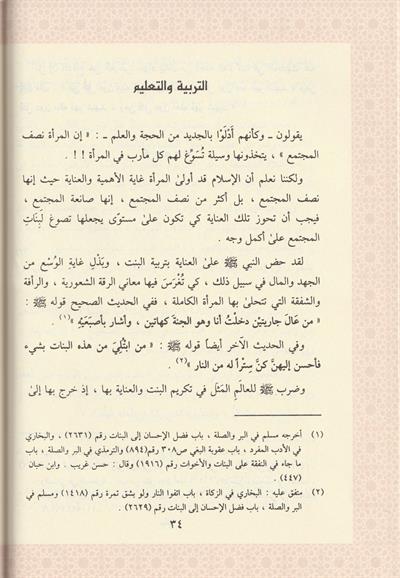 التربية والتعليم
يقولون ـ وكأنهم أَدْلَوْا بالجديد من الحجة والعلم ـ : « إن المرأة نصف
المجتمع » ، يتخذونها وسيلة تُسَوِّغ لهم كل مأرب في المرأة ! ! .
ولكننا نعلم أن الإسلام قد أولىٰ المرأة غاية الأهمية والعناية حيث إنها
نصف المجتمع ، بل أكثر من نصف المجتمع ، إنها صانعة المجتمع ،
فيجب أن تحوز تلك العناية كي تكون علىٰ مستوًى يجعلها تصوغ لَبِنَاتِ
المجتمع علىٰ أكمل وجه .
لقد حض النبي ﷺ علىٰ العناية بتربية البنت ، وبَذْلِ غايةِ الوُسْعِ من
الجهد والمال في سبيل ذلك ، كي تُغْرَسَ فيها معاني الرقة الشعورية ، والرأفة
والشفقة التي تتحلىٰ بها المرأة الكاملة ، ففي الحديث الصحيح قوله ﷺ :
« من عَالَ جاريتيْن دخلْتُ أنا وهو الجنةَ كهاتين ، وأشار بأصبَعَيْهِ »(١) .
وفي الحديث الآخر أيضاً قوله ﷺ : « من ابتُلِيَ من هذه البنات بشيء
فأحسن إليهنَّ كنَّ سِتْراً له من النار »(٢) .
وضرب ﷺ للعالَمِ المَثَلَ في تكريم البنت والعناية بها ، إذ خرج بها إلىٰ
(١) أخرجه مسلم في البر والصلة ، باب فضل الإحسان إلى البنات رقم (٢٦٣١) ، والبخاري
في الأدب المفرد ، باب عقوبة البغي ص٣٠٨ رقم(٨٩٤) والترمذي في البر والصلة ، باب
ما جاء في النفقة على البنات والأخوات رقم (١٩١٦) وقال : حسن غريب . وابن حبان
(٤٤٧) .
(٢) متفق عليه : البخاري في الزكاة ، باب اتقوا النار ولو بشق تمرة رقم (١٤١٨) ومسلم في
البر والصلة ، باب فضل الإحسان إلى البنات رقم (٢٦٢٩) .
٣٤